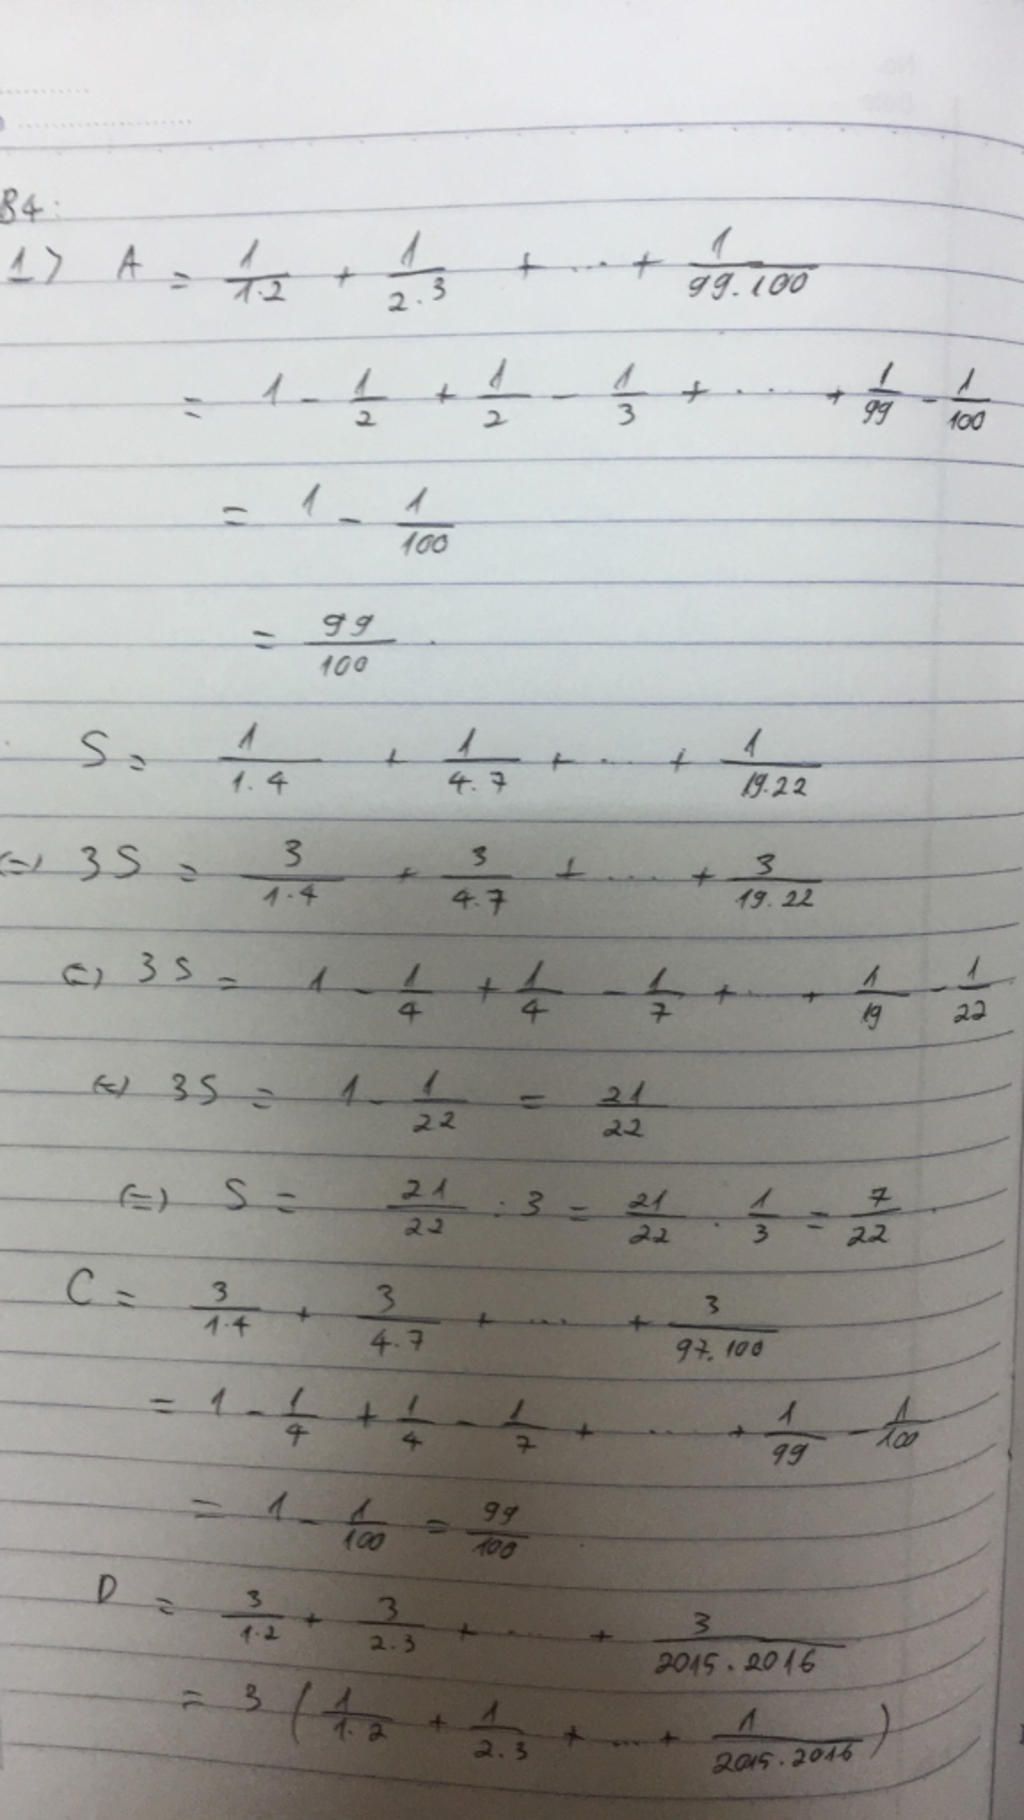 B4:
1> A = 1/1.2 + 1/2.3 + ... + 1/99.100
= 1 - 1/2 + 1/2 - 1/3 + ... + 1/99 - 1/100
= 1 - 1/100
= 99/100 .
S = 1/1.4 + 1/4.7 + ... + 1/19.22
(=) 3S = 3/1.4 + 3/4.7 + ... + 3/19.22
(=) 3S = 1 - 1/4 + 1/4 - 1/7 + ... + 1/19 - 1/22
(=) 3S = 1 - 1/22 = 21/22
(=) S = 21/22 : 3 = 21/22 . 1/3 = 7/22 .
C = 3/1.4 + 3/4.7 + ... + 3/97.100
= 1 - 1/4 + 1/4 - 1/7 + ... + 1/99 - 1/100
= 1 - 1/100 = 99/100 .
D = 3/1.2 + 3/2.3 + ... + 3/2015.2016
= 3 (1/1.2 + 1/2.3 + ... + 1/2015.2016)